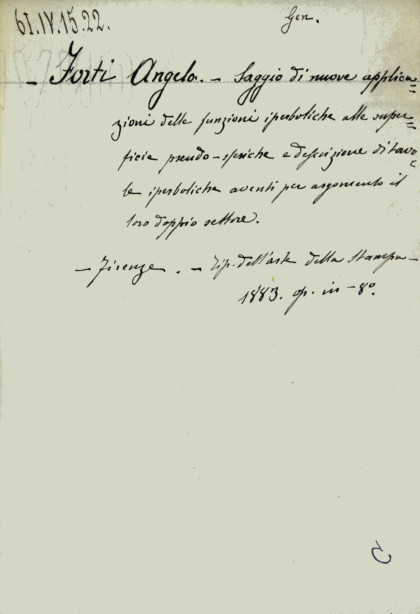 61.IV.15.22.
Gen.
- Forti Angelo. - Saggio di nuove applica=
zioni delle funzioni iperboliche alle super=
ficie pseudo-sferiche e descrizione di tavo=
le iperboliche aventi per argomento il
loro doppio settore.
- Firenze. - Tip. dell'arte della Stampa -
1883. op. in - 8º.